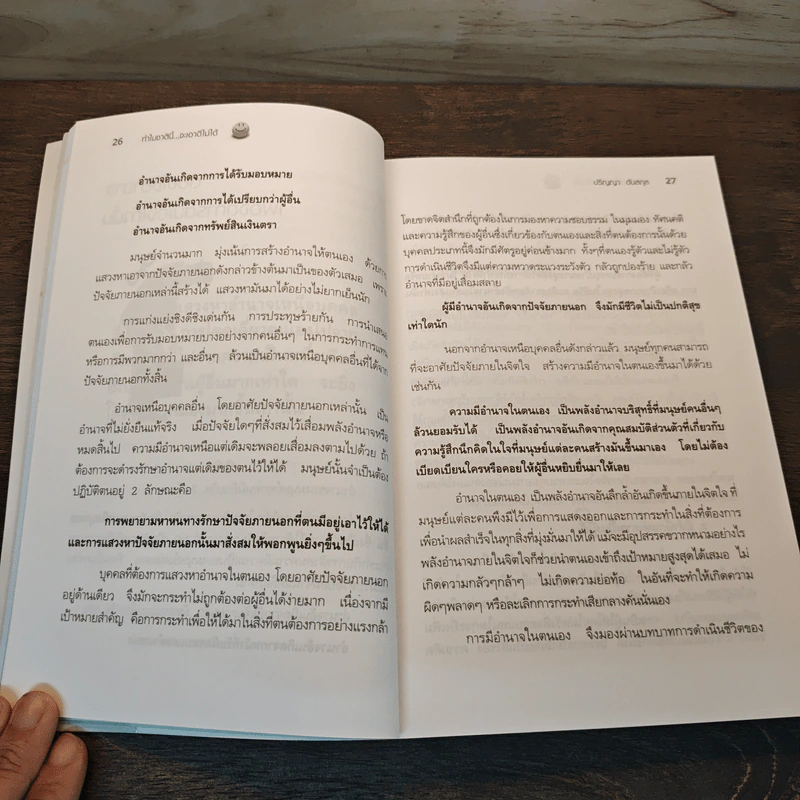 26 ทำไมชาตินี้...จะเอาดีไม่ได้
อำนาจอันเกิดจากการได้รับมอบหมาย
อำนาจอันเกิดจากการได้เปรียบกว่าผู้อื่น
อำนาจอันเกิดจากทรัพย์สินเงินตรา
มนุษย์จำนวนมาก มุ่งเน้นการสร้างอำนาจให้ตนเอง ด้วยการ
แสวงหาเอาจากปัจจัยภายนอกดังกล่าวข้างต้นมาเป็นของตัวเสมอ เพราะ
ปัจจัยภายนอกเหล่านี้สร้างได้ แสวงหามาได้อย่างไม่ยากเย็นนัก
การแก่งแย่งชิงดีชิงเด่นกัน การประทุษร้ายกัน การนำเสนอ
ตนเองเพื่อการรับมอบหมายบางอย่างจากคนอื่นๆ ในการกระทำการแทน
หรือการมีพวกมากกว่า และอื่นๆ ล้วนเป็นอำนาจเหนือบุคคลอื่นที่ได้จาก
ปัจจัยภายนอกทั้งสิ้น
อำนาจเหนือบุคคลอื่น โดยอาศัยปัจจัยภายนอกเหล่านั้น เป็น
อำนาจที่ไม่ยั่งยืนแท้จริง เมื่อปัจจัยใดๆที่สั่งสมไว้เสื่อมพลังอำนาจหรือ
หมดสิ้นไป ความมีอำนาจเหนือแต่เดิมจะพลอยเสื่อมลงตามไปด้วย ถ้า
ต้องการจะดำรงรักษาอำนาจแต่เดิมของตนไว้ให้ได้ มนุษย์นั้นจำเป็นต้อง
ปฏิบัติตนอยู่ 2 ลักษณะคือ
การพยายามหาหนทางรักษาปัจจัยภายนอกที่ตนมีอยู่เอาไว้ให้ได้
และการแสวงหาปัจจัยภายนอกนั้นมาสั่งสมให้พอกพูนยิ่งๆขึ้นไป
บุคคลที่ต้องการแสวงหาอำนาจในตนเอง โดยอาศัยปัจจัยภายนอก
อยู่ด้านเดียว จึงมักจะกระทำไม่ถูกต้องต่อผู้อื่นได้ง่ายมาก เนื่องจากมี
เป้าหมายสำคัญ คือการกระทำเพื่อให้ได้มาในสิ่งที่ตนต้องการอย่างแรงกล้า
ปริญญา ตันสกุล 27
โดยขาดจิตสำนึกที่ถูกต้องในการมองหาความชอบธรรม ในมุมมอง ทัศนคติ
และความรู้สึกของผู้อื่นซึ่งเกี่ยวข้องกับตนเองและสิ่งที่ตนต้องการนั้นด้วย
บุคคลประเภทนี้จึงมักมีศัตรูอยู่ค่อนข้างมาก ทั้งๆที่ตนเองรู้ตัวและไม่รู้ตัว
การดำเนินชีวิตจึงมีแต่ความหวาดระแวงระวังตัว กลัวถูกปองร้าย และกลัว
อำนาจที่มีอยู่เสื่อมสลาย
ผู้มีอำนาจอันเกิดจากปัจจัยภายนอก จึงมักมีชีวิตไม่เป็นปกติสุข
เท่าใดนัก
นอกจากอำนาจเหนือบุคคลอื่นดังกล่าวแล้ว มนุษย์ทุกคนสามารถ
ที่จะอาศัยปัจจัยภายในจิตใจ สร้างความมีอำนาจในตนเองขึ้นมาได้ด้วย
เช่นกัน
ความมีอำนาจในตนเอง เป็นพลังอำนาจบริสุทธิ์ที่มนุษย์คนอื่นๆ
ล้วนยอมรับได้ เป็นพลังอำนาจอันเกิดจากคุณสมบัติส่วนตัวที่เกี่ยวกับ
ความรู้สึกนึกคิดในใจที่มนุษย์แต่ละคนสร้างมันขึ้นมาเอง โดยไม่ต้อง
เบียดเบียนใครหรือคอยให้ผู้อื่นหยิบยื่นมาให้เลย
อำนาจในตนเอง เป็นพลังอำนาจอันลึกล้ำอันเกิดขึ้นภายในจิตใจ ที่
มนุษย์แต่ละคนพึงมีไว้เพื่อการแสดงออกและการกระทำในสิ่งที่ต้องการ
เพื่อนำผลสำเร็จในทุกสิ่งที่มุ่งมั่นมาให้ได้ แม้จะมีอุปสรรคขวากหนามอย่างไร
พลังอำนาจภายในจิตใจก็ช่วยนำตนเองเข้าถึงเป้าหมายสูงสุดได้เสมอ ไม่
เกิดความกลัวๆกล้าๆ ไม่เกิดความย่อท้อ ในอันที่จะทำให้เกิดความ
ผิดๆพลาดๆ หรือละเลิกการกระทำเสียกลางคันนั่นเอง
การมีอำนาจในตนเอง จึงมองผ่านบทบาทการดำเนินชีวิตของ